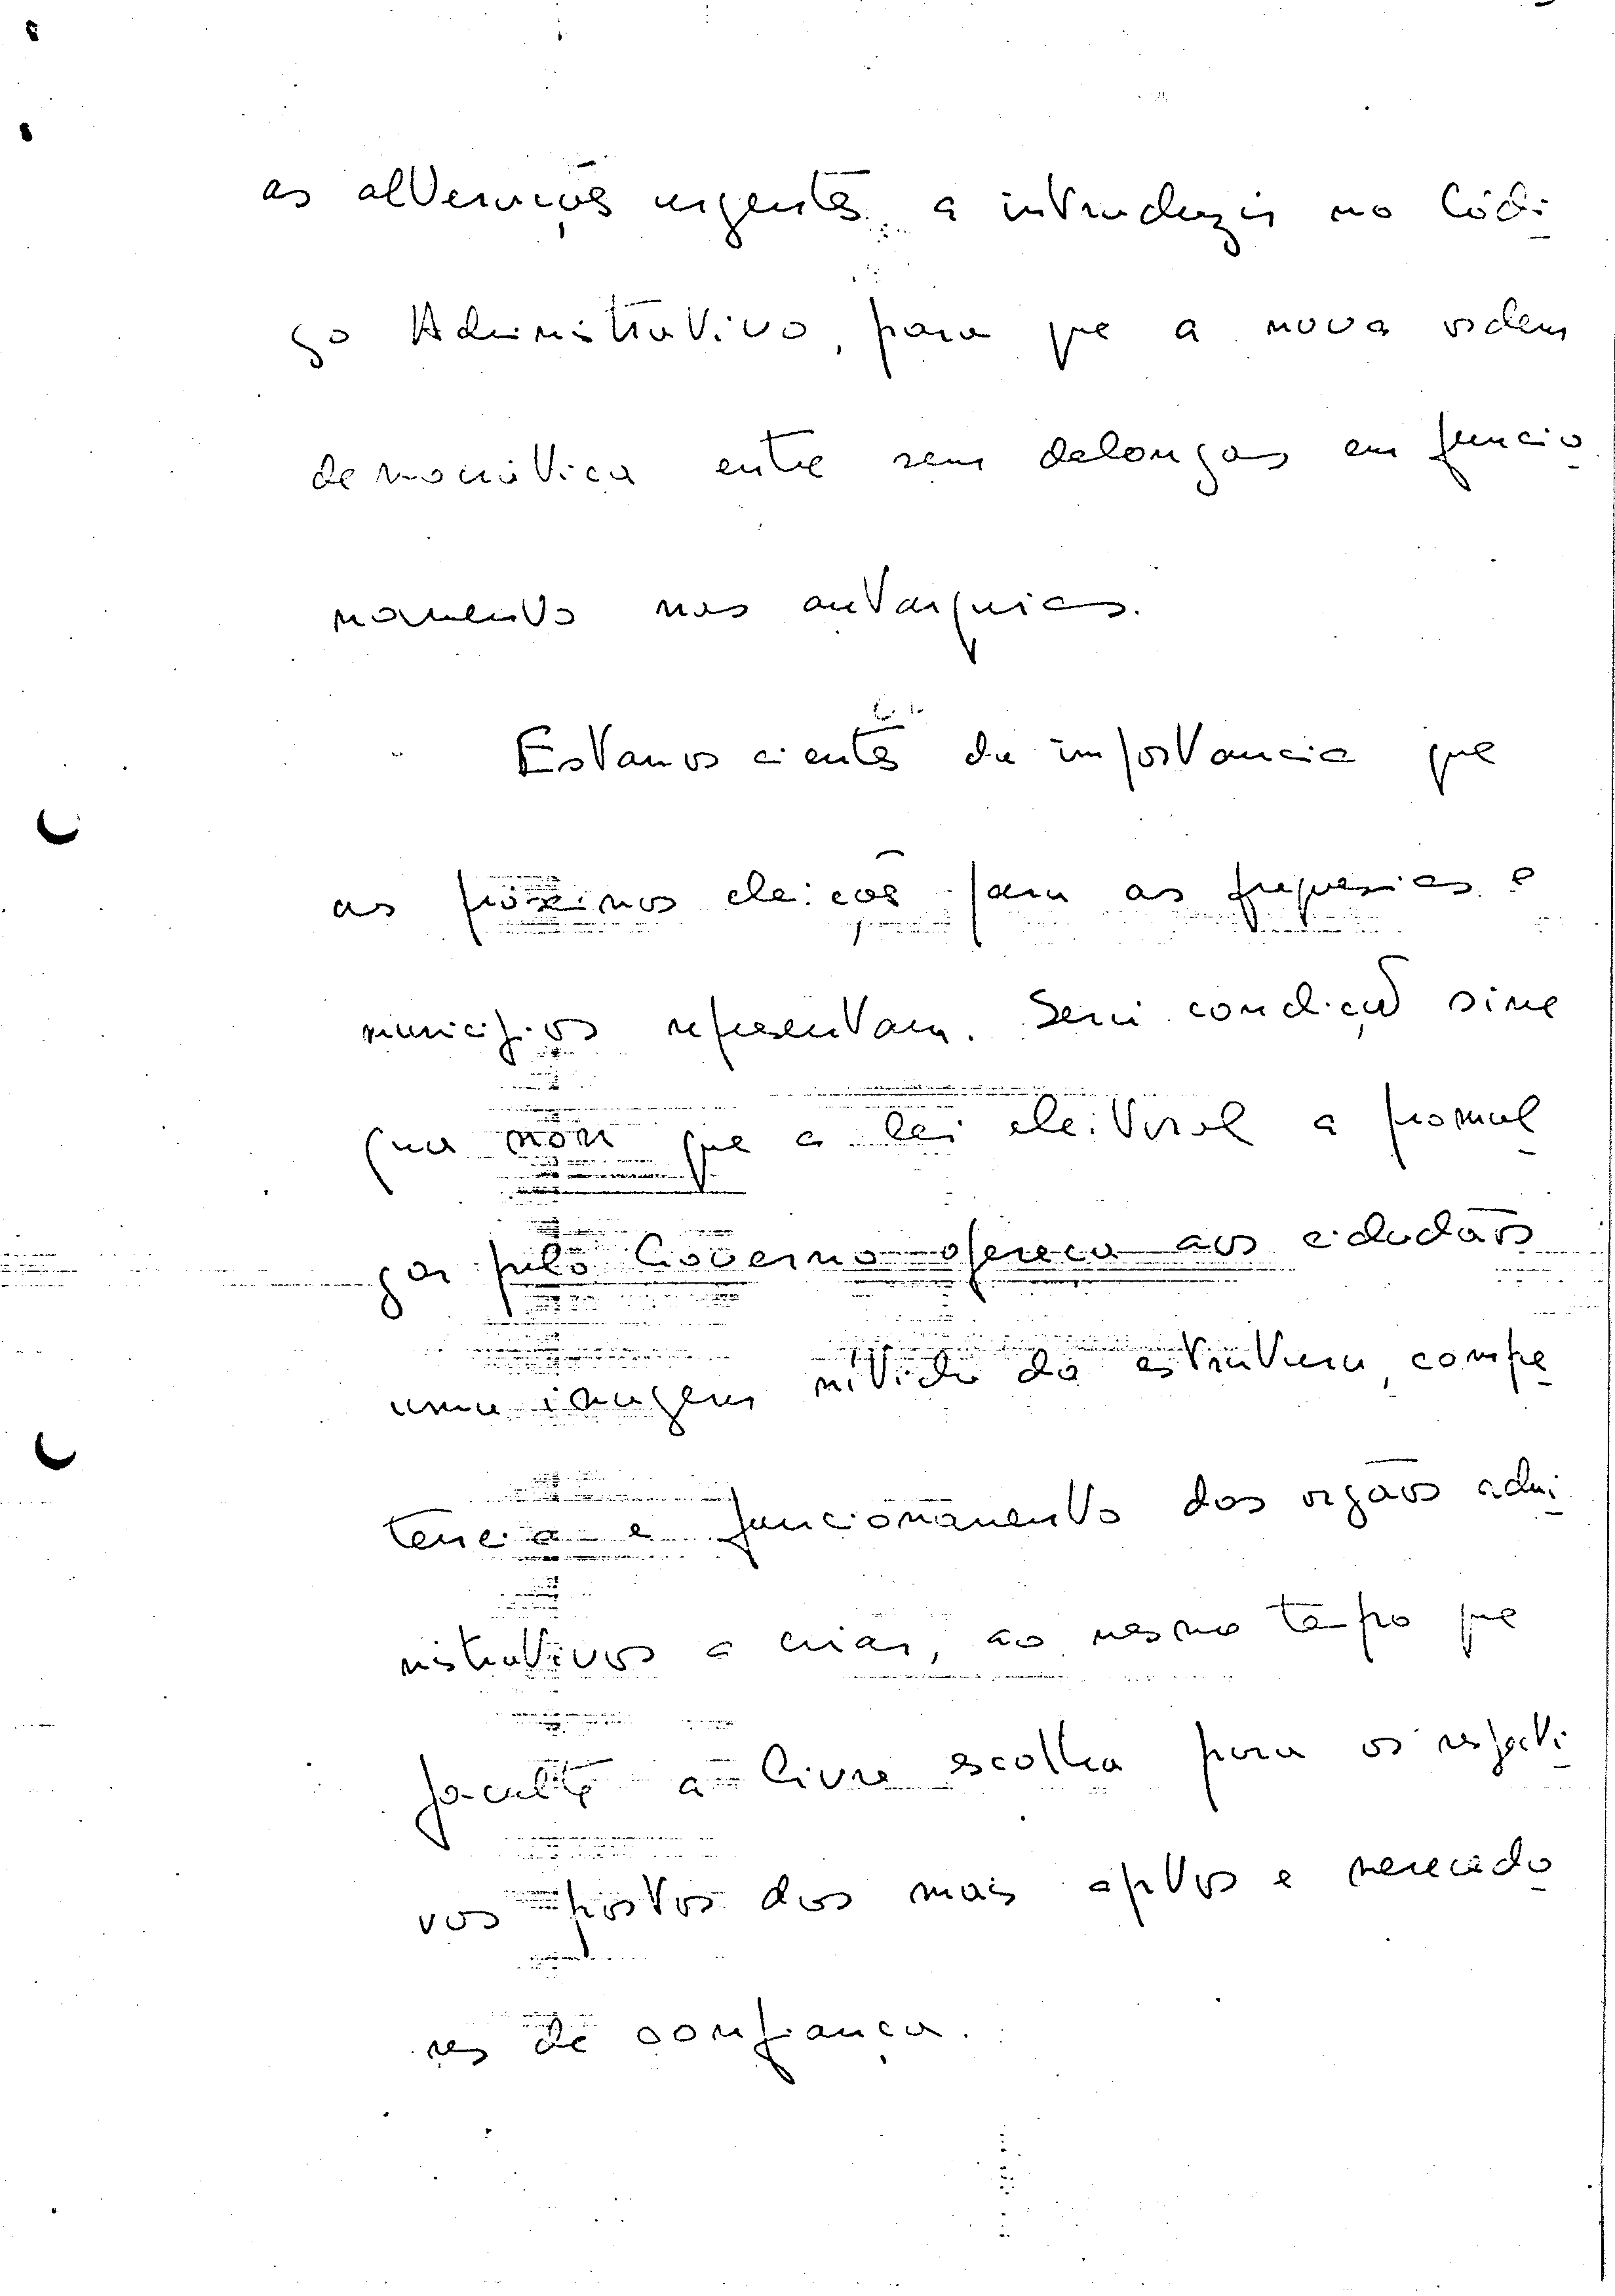 as alterações urgentes a introduzir no Códi
go Administrativo, para que a nova ordem
democrática entre sem delongas em funcio
namento nas autarquias.
Estamos cientes da importancia que
as próximas eleições para as freguesias e
municípios representam. Será condição sine
qua non que a lei eleitoral a promul
gar pelo Governo ofereça aos cidadãos
uma imagem nítida da estrutura, compe
tencia e funcionamento dos orgãos admi
nistrativos a criar, ao mesmo tempo que
faculte a livre escolha para os respecti
vos postos dos mais aptos e merecedo
res de confiança.